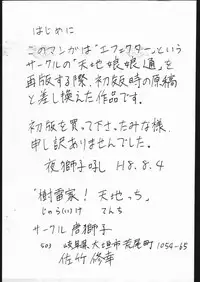 はじめに
このマンガは“エフェクター”という
サークルの「天地娘娘通」を
再版する際、初版時の原稿
と差し換えた作品です。
初版を買って下さったみな様、
申し訳ありませんでした。
夜獅子吼 H8.8.4
「樹雷家!天地っち」
じゅらい(け てんち
サークル 唐獅子
503 岐阜県大垣市荒尾町1054-65
佐竹修幸